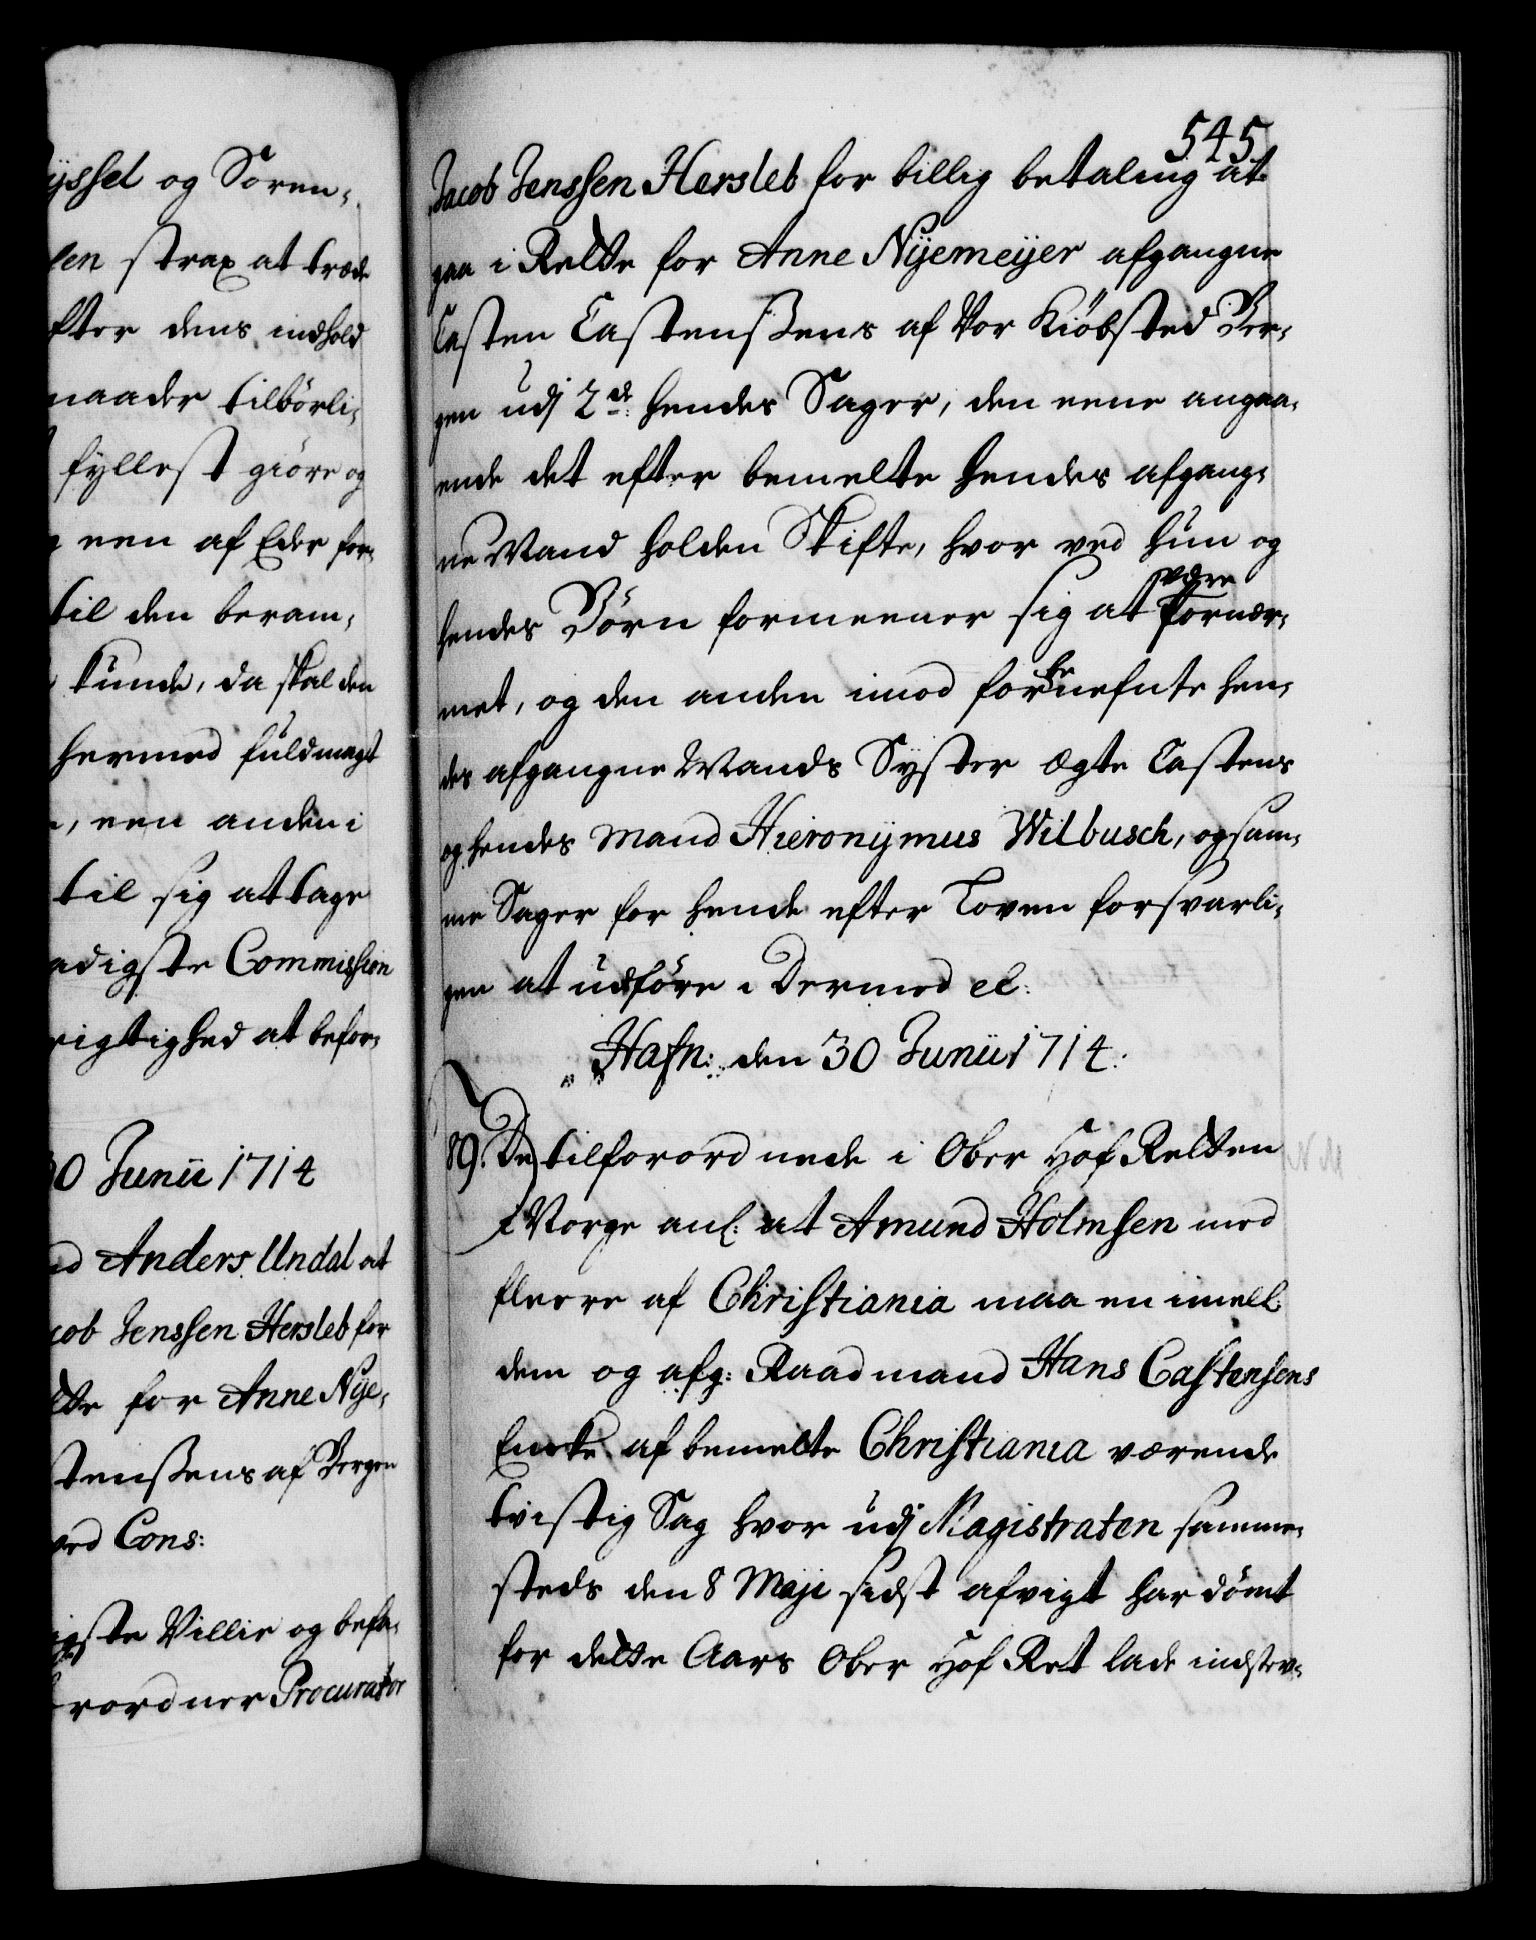 yssel og Søren-
sen strax at træde
efter dens indhold
maader tilbörli-
fyllest giöre og
een af Eder for-
til den beram-
kunde, da skal den
hermed fuldmagt
, een anden i
til sig at tage
adigste Commission
rigtighed at befor-
30 Junii 1714
Anders Undal at
cob Jenssen Hersleb for
ette for Anne Nÿe-
stenssens af Bergen
ved Cons:
igste Villie og befa-
rordner Procurator
545
Jacob Jenssen Hersleb for billig betaling at
gaa i Rette for Anne Nÿemeÿer afgangne
Casten Castenssens af Vor Kiöbsted Ber-
gen udj 2de: hendes Sager, den eene angaa-
ende det efter bemelte hendes afgang-
ne Mand holden Skifte, hvor ved hun og
hendes Börn formeener sig at være fornær-
met, og den anden imod forbenefnte hen-
des afgangne Mands Syster Ægte Castens
og hendes Mand Hieronÿmus Wilbusch, og sam-
me Sager for hende efter Loven forsvarli-
gen at udføre. Dermed el:
Hafn: den 30 Junii 1714.
89. De tilforordnede i Ober Hof Retten
i Norge anl: at Amund Holmsen med
fleere af Christiania maa en imell:
dem og afg: Raadmand Hans Castensens
Encke af bemelte Christiania værende
tvistig Sag hvor udj Magistraten samme-
steds den 8 Maji sidst afvigt har dömt
for dette Aars Ober Hof Ret lade indstev-